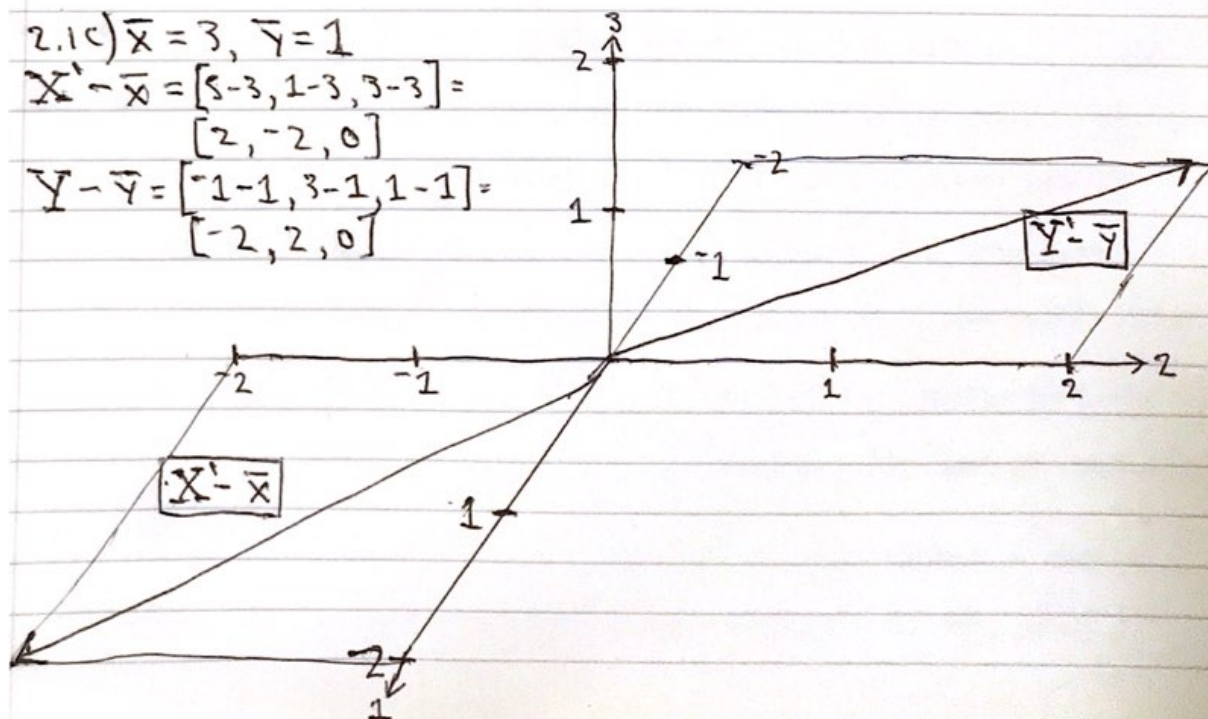 2.1c) x̄ = 3, ȳ = 1
X' - x̄ = [5-3, 1-3, 3-3] =
[2, -2, 0]
Y - ȳ = [-1-1, 3-1, 1-1] =
[-2, 2, 0]
3
2
-2
1
Y' - ȳ
-1
-2
-1
1
2
2
X' - x̄
1
2
1